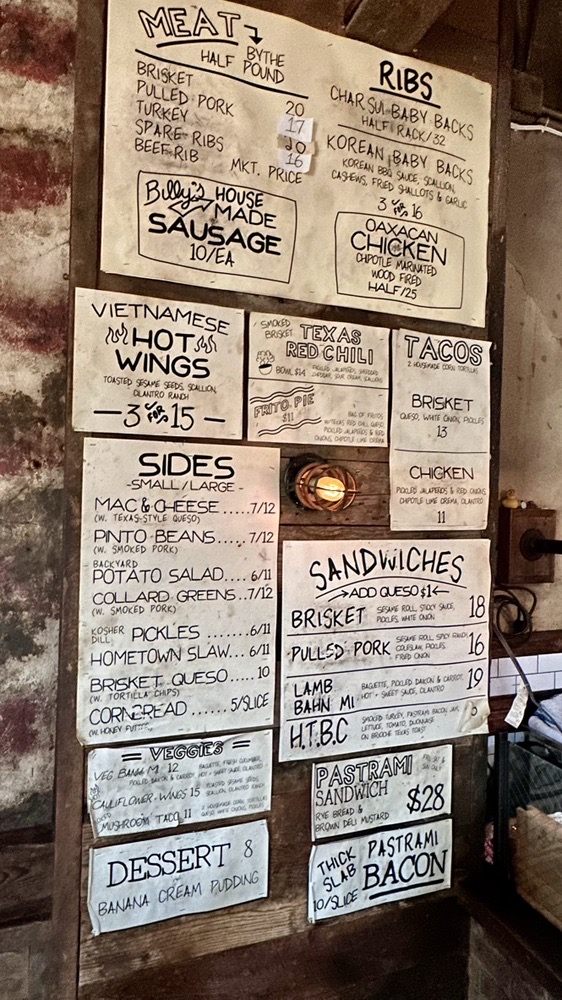 MEAT
BY THE
HALF POUND
BRISKET
PULLED PORK 20
TURKEY 17
SPARE RIBS 20
BEEF RIB 16
MKT. PRICE
Billy's HOUSE
MADE
SAUSAGE
10/EA
RIBS
CHAR SUI BABY BACKS
HALF RACK/32
KOREAN BABY BACKS
KOREAN BBQ SAUCE, SCALLION,
CASHEWS, FRIED SHALLOTS & GARLIC
3 FOR 16
OAXACAN
CHICKEN
CHIPOTLE MARINATED
WOOD FIRED
HALF/25
VIETNAMESE
HOT
WINGS
TOASTED SESAME SEEDS, SCALLION,
CILANTRO RANCH
3 FOR 15
SMOKED
BRISKET TEXAS
RED CHILI
BOWL $14 PICKLED JALAPEÑOS, SHREDDED
CHEDDAR, SOUR CREAM, SCALLIONS
FRITO PIE
$11
BAG OF FRITOS
W/TEXAS RED CHILI QUESO,
PICKLED JALAPEÑOS & RED
ONIONS, CHIPOTLE LIME CREMA
TACOS
2 HOUSEMADE CORN TORTILLAS
BRISKET
QUESO, WHITE ONION, PICKLES
13
CHICKEN
PICKLED JALAPEÑOS & RED ONIONS,
CHIPOTLE LIME CREMA, CILANTRO
11
SIDES
-SMALL/LARGE-
MAC & CHEESE.....7/12
(W. TEXAS-STYLE QUESO)
PINTO BEANS.....7/12
(W. SMOKED PORK)
BACKYARD
POTATO SALAD....6/11
COLLARD GREENS..7/12
(W. SMOKED PORK)
KOSHER
DILL PICKLES .......6/11
HOMETOWN SLAW...6/11
BRISKET QUESO.....10
(W. TORTILLA CHIPS)
CORNBREAD ......5/SLICE
(W. HONEY BUTTER)
SANDWICHES
ADD QUESO $1
BRISKET SESAME ROLL, STICKY SAUCE,
PICKLES, WHITE ONION 18
PULLED PORK SESAME ROLL, SPICY
COLESLAW, PICKLES,
FRIED ONION 16
LAMB
BAHN MI BAGUETTE, PICKLED DAIKON & CARROT,
HOT + SWEET SAUCE, CILANTRO 19
H.T.B.C SMOKED TURKEY, PASTRAMI BACON JAM,
LETTUCE, TOMATO, DIJONNAISE
ON BRIOCHE TEXAS TOAST
VEGGIES
VEG BAHN MI 12 BAGUETTE, FRESH CUCUMBER,
PICKLED DAIKON & CARROT, HOT + SWEET SAUCE, CILANTRO
CAULIFLOWER WINGS 15 TOASTED SESAME SEEDS,
SCALLION, CILANTRO RANCH
MUSHROOM TACO 11 2 HOUSEMADE CORN TORTILLAS
QUESO, WHITE ONIONS, PICKLES
PASTRAMI
SANDWICH
RYE BREAD &
BROWN DELI MUSTARD
$28
DESSERT 8
BANANA CREAM PUDDING
THICK
SLAB
10/SLICE
PASTRAMI
BACON